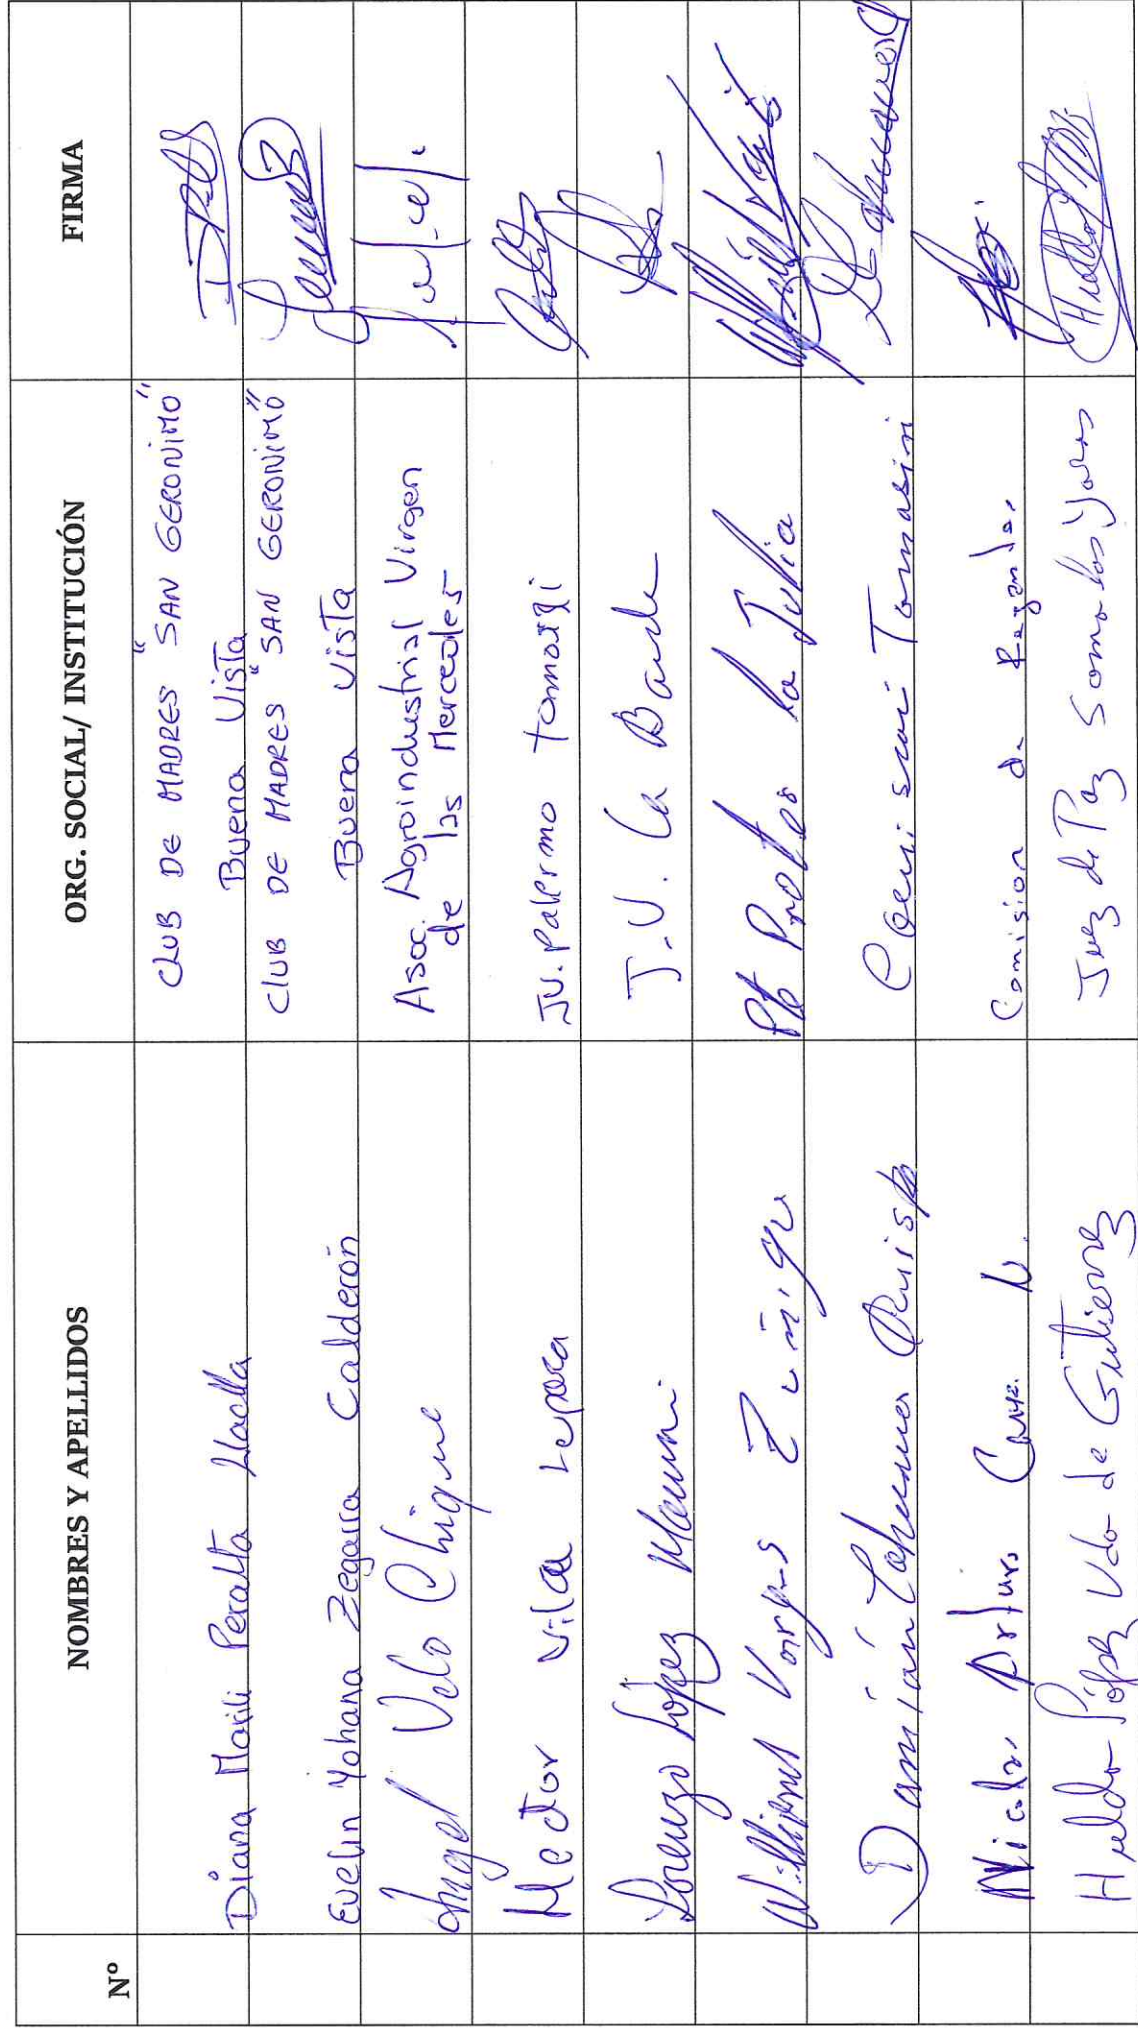 Nº NOMBRES Y APELLIDOS ORG. SOCIAL/ INSTITUCIÓN FIRMA
Diana Marili Peralta Llaclla CLUB DE MADRES "SAN GERONIMO"
Buena Vista
Evelin Yohana Zegarra Calderón CLUB DE MADRES "SAN GERONIMO"
Buena Vista
Angel Velo Chique Asoc. Agroindustrial Virgen
de las Mercedes
Hector Vilca JU. Palermo
Lorenzo López Mamani J.V. La
Williams Vargas Zuñiga La Julia
Damián Quispe Tomasiri
Nicolas Arturo Comision de Regantes
López Vda de Gutierrez Juez de Paz Sama las Yaras